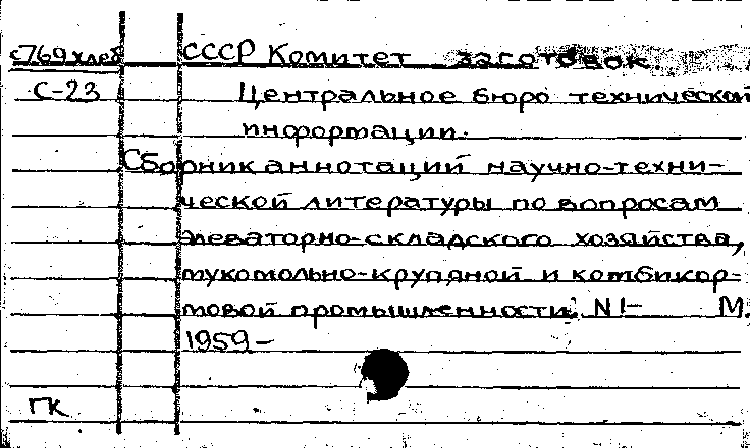 с769хлеб СССР Комитет заготовок
С-23 Центральное бюро технической
информации.
Сборник аннотаций научно-техни-
ческой литературы по вопросам
элеваторно-складского хозяйства,
мукомольно-крупяной и комбикор-
мовой промышленности. N 1- М.
1959-
ГК